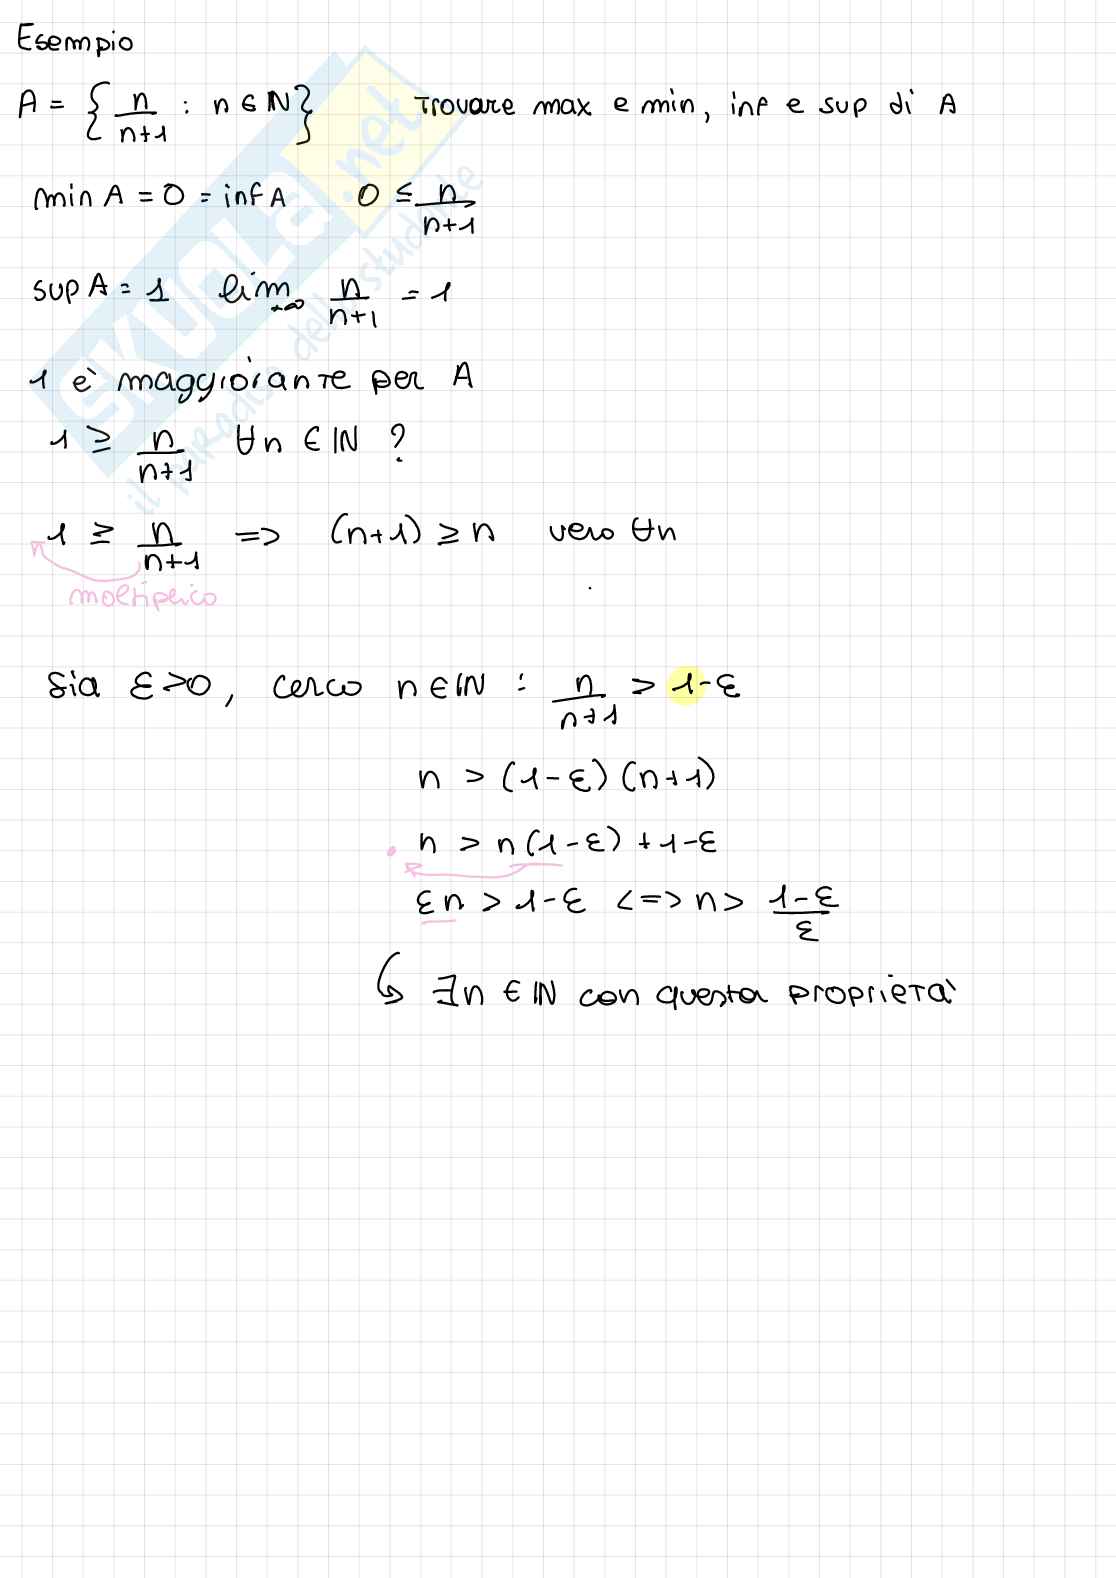 Esempio
A = { n/(n+1) : n ∈ ℕ } Trovare max e min, inf e sup di A
min A = 0 = inf A 0 ≤ n/(n+1)
sup A = 1 lim +∞ n/(n+1) = 1
1 è maggiorante per A
1 ≥ n/(n+1) ∀n ∈ ℕ ?
1 ≥ n/(n+1) => (n+1) ≥ n vero ∀n
moltiplico
Sia ε>0, cerco n ∈ ℕ : n/(n+1) > 1-ε
n > (1-ε)(n+1)
n > n(1-ε) + 1-ε
εn > 1-ε <=> n > (1-ε)/ε
↳ ∃n ∈ ℕ con questa proprietà
SKUOLA.net
il paradiso dello studente